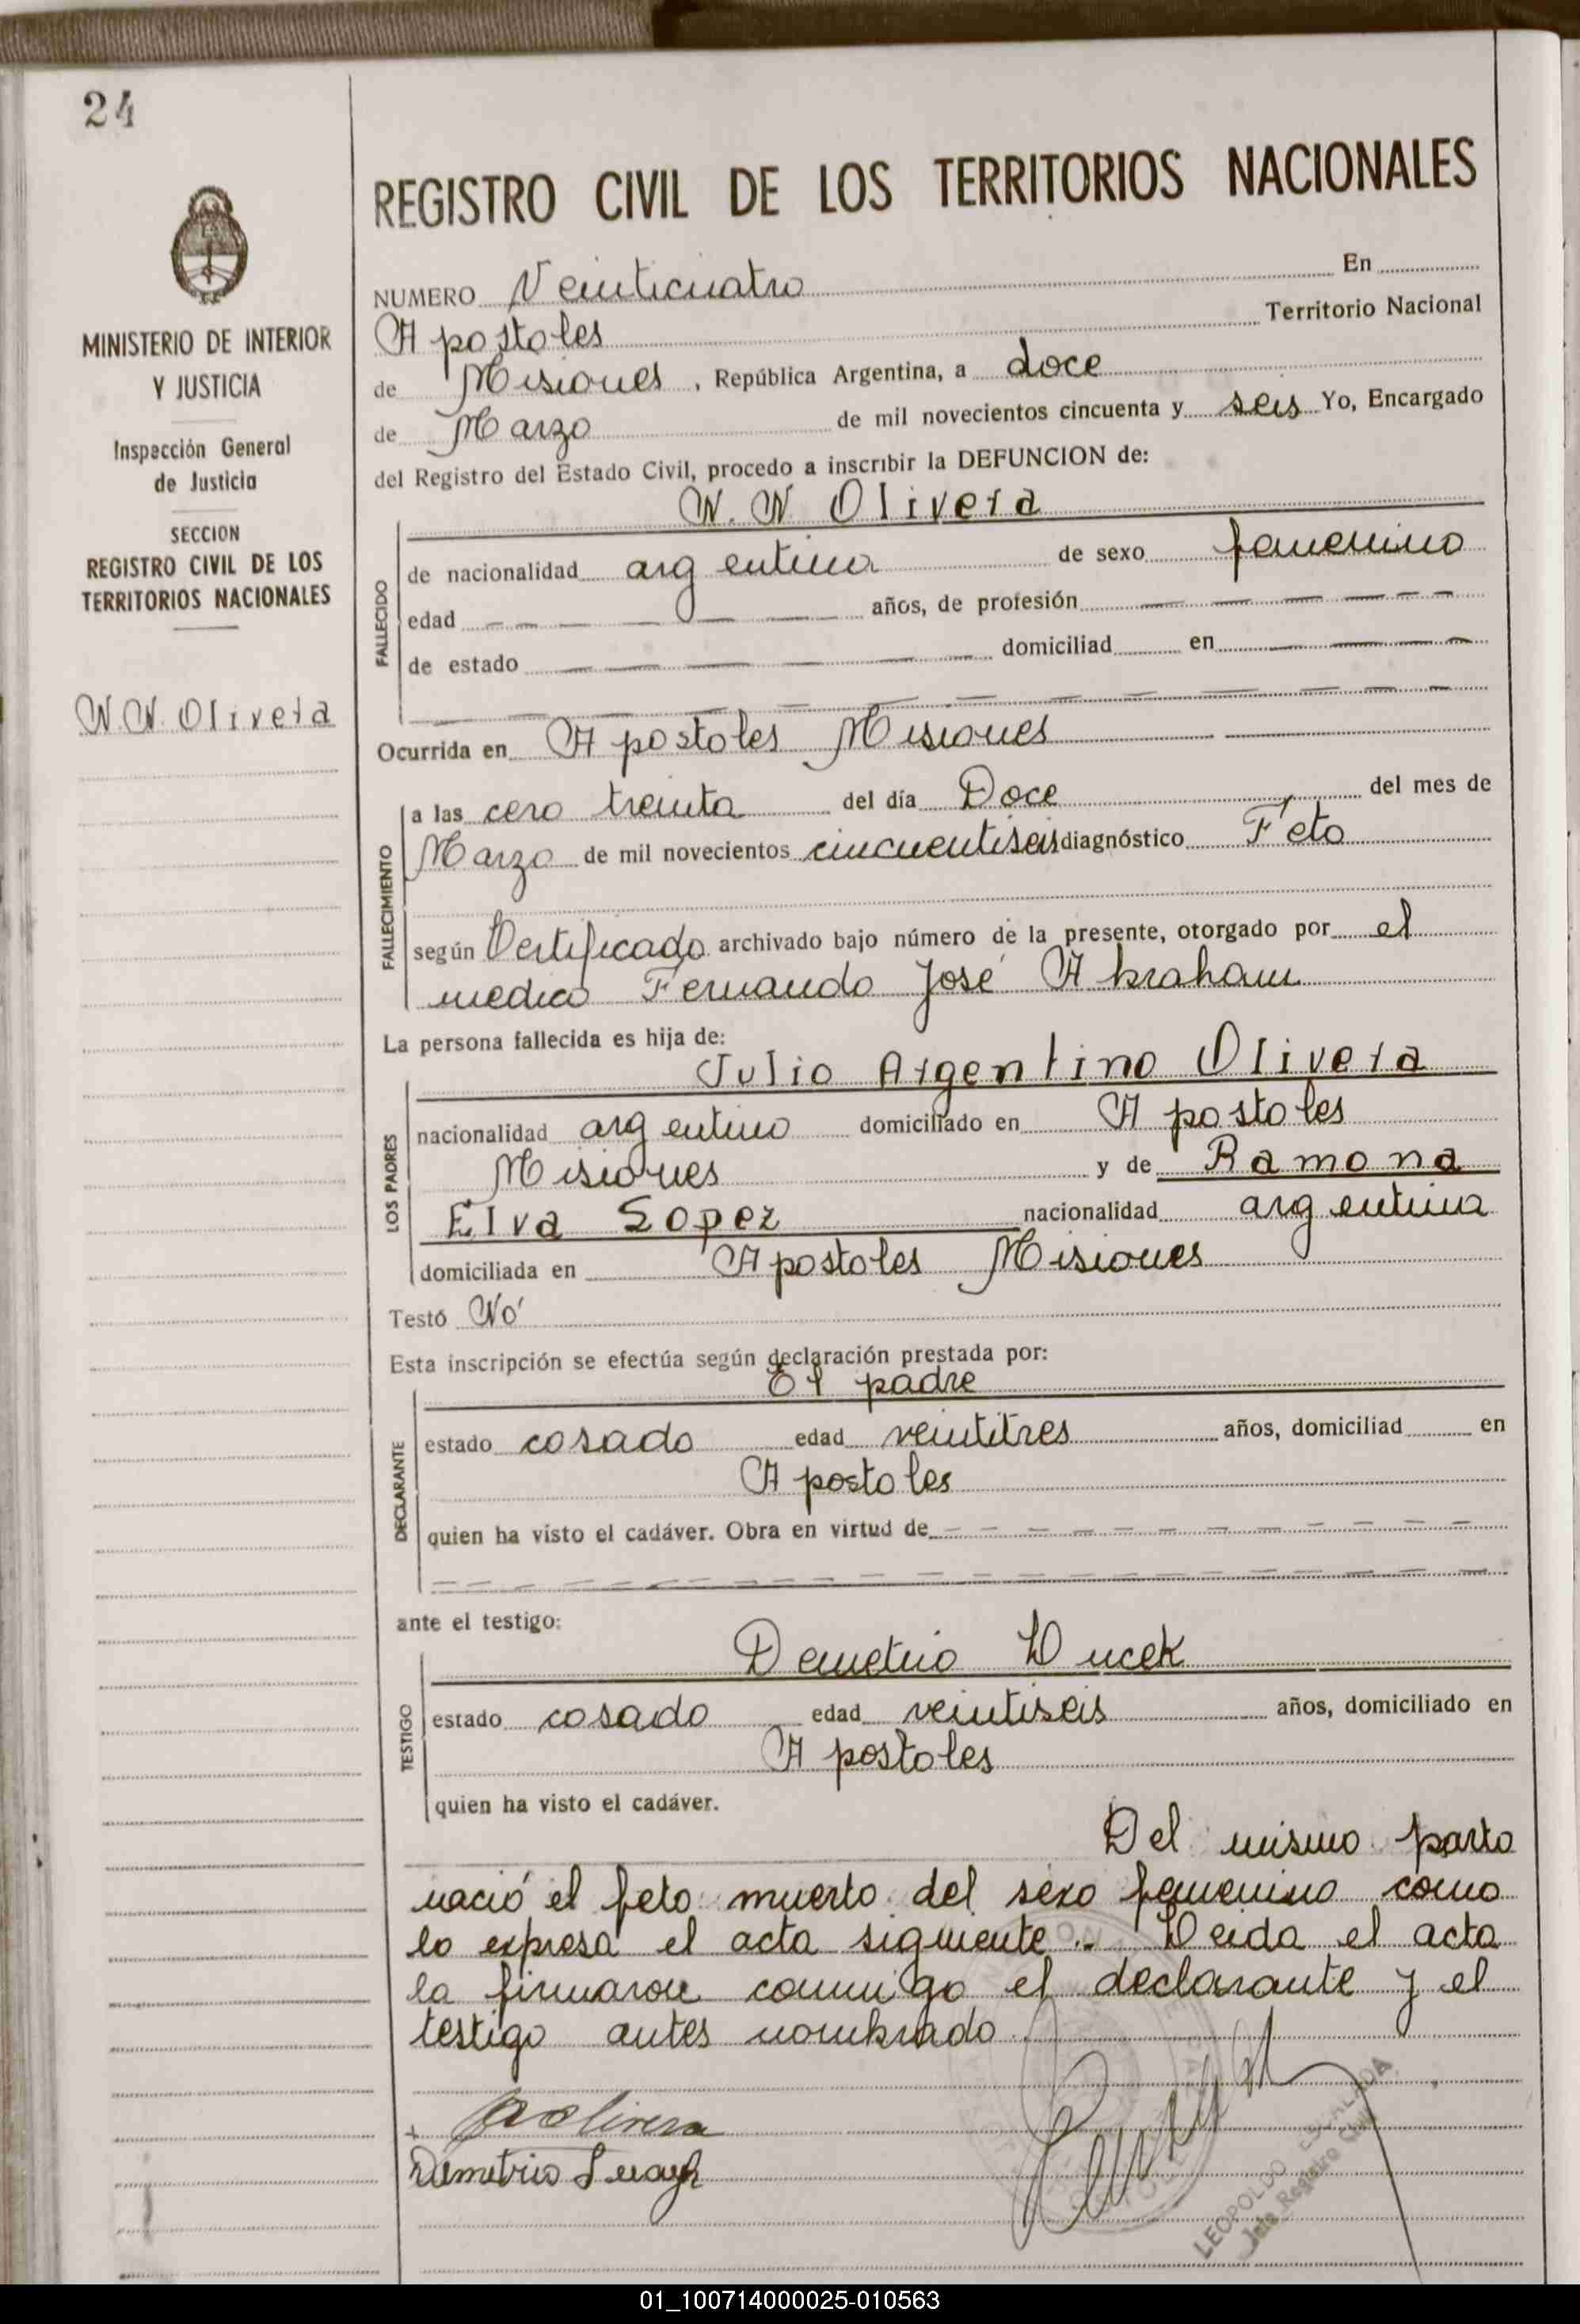 24
REGISTRO CIVIL DE LOS TERRITORIOS NACIONALES
MINISTERIO DE INTERIOR
Y JUSTICIA
Inspección General
de Justicia
SECCION
REGISTRO CIVIL DE LOS
TERRITORIOS NACIONALES
N. N. Olivera
NUMERO Veinticuatro En
Apostoles Territorio Nacional
de Misiones, República Argentina, a doce
de Marzo de mil novecientos cincuenta y seis Yo, Encargado
del Registro del Estado Civil, procedo a inscribir la DEFUNCION de:
N. N Olivera
FALLECIDO
de nacionalidad argentina de sexo femenino
edad años, de profesión
de estado domiciliad en
Ocurrida en Apostoles Misiones
FALLECIMIENTO
a las cero treinta del día Doce del mes de
Marzo de mil novecientos cincuentiseis diagnóstico Feto
según Certificado archivado bajo número de la presente, otorgado por el
medico Fernando José Abraham
La persona fallecida es hija de:
Julio Argentino Olivera
LOS PADRES
nacionalidad argentino domiciliado en Apostoles
Misiones y de Ramona
Elva Lopez nacionalidad argentina
domiciliada en Apostoles Misiones
Testó No
Esta inscripción se efectúa según declaración prestada por:
El padre
DECLARANTE
estado casado edad veintitres años, domiciliad en
Apostoles
quien ha visto el cadáver. Obra en virtud de
ante el testigo:
Demetrio
TESTIGO
estado casado edad veintiseis años, domiciliado en
Apostoles
quien ha visto el cadáver.
Del mismo parto
nació el feto muerto del sexo femenino como
lo expresa el acta siguiente.- Leida el acta
la firmaron conmigo el declarante y el
testigo antes nombrado
Olivera
Demetrio
LEOPOLDO ESCALADA
Jefe Registro Civil
01_100714000025-010563